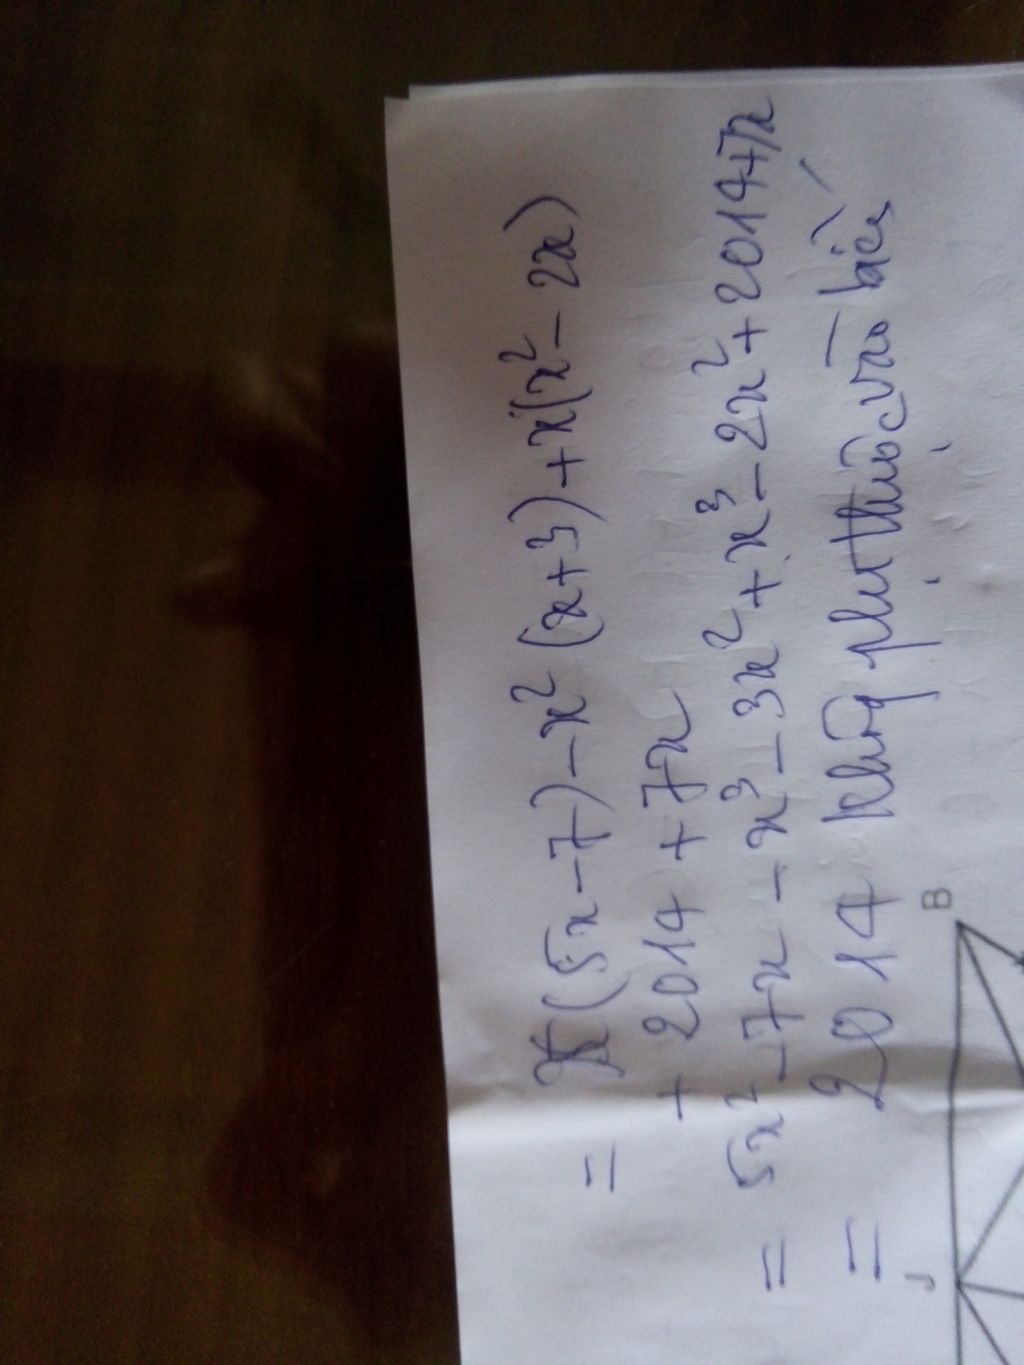 = x(5x-7)-x²(x+3)+x(x²-2x)
+ 2014 + 7x
= 5x²-7x-x³-3x²+x³-2x²+2014+7x
= 2014 không phụ thuộc vào biến
J B